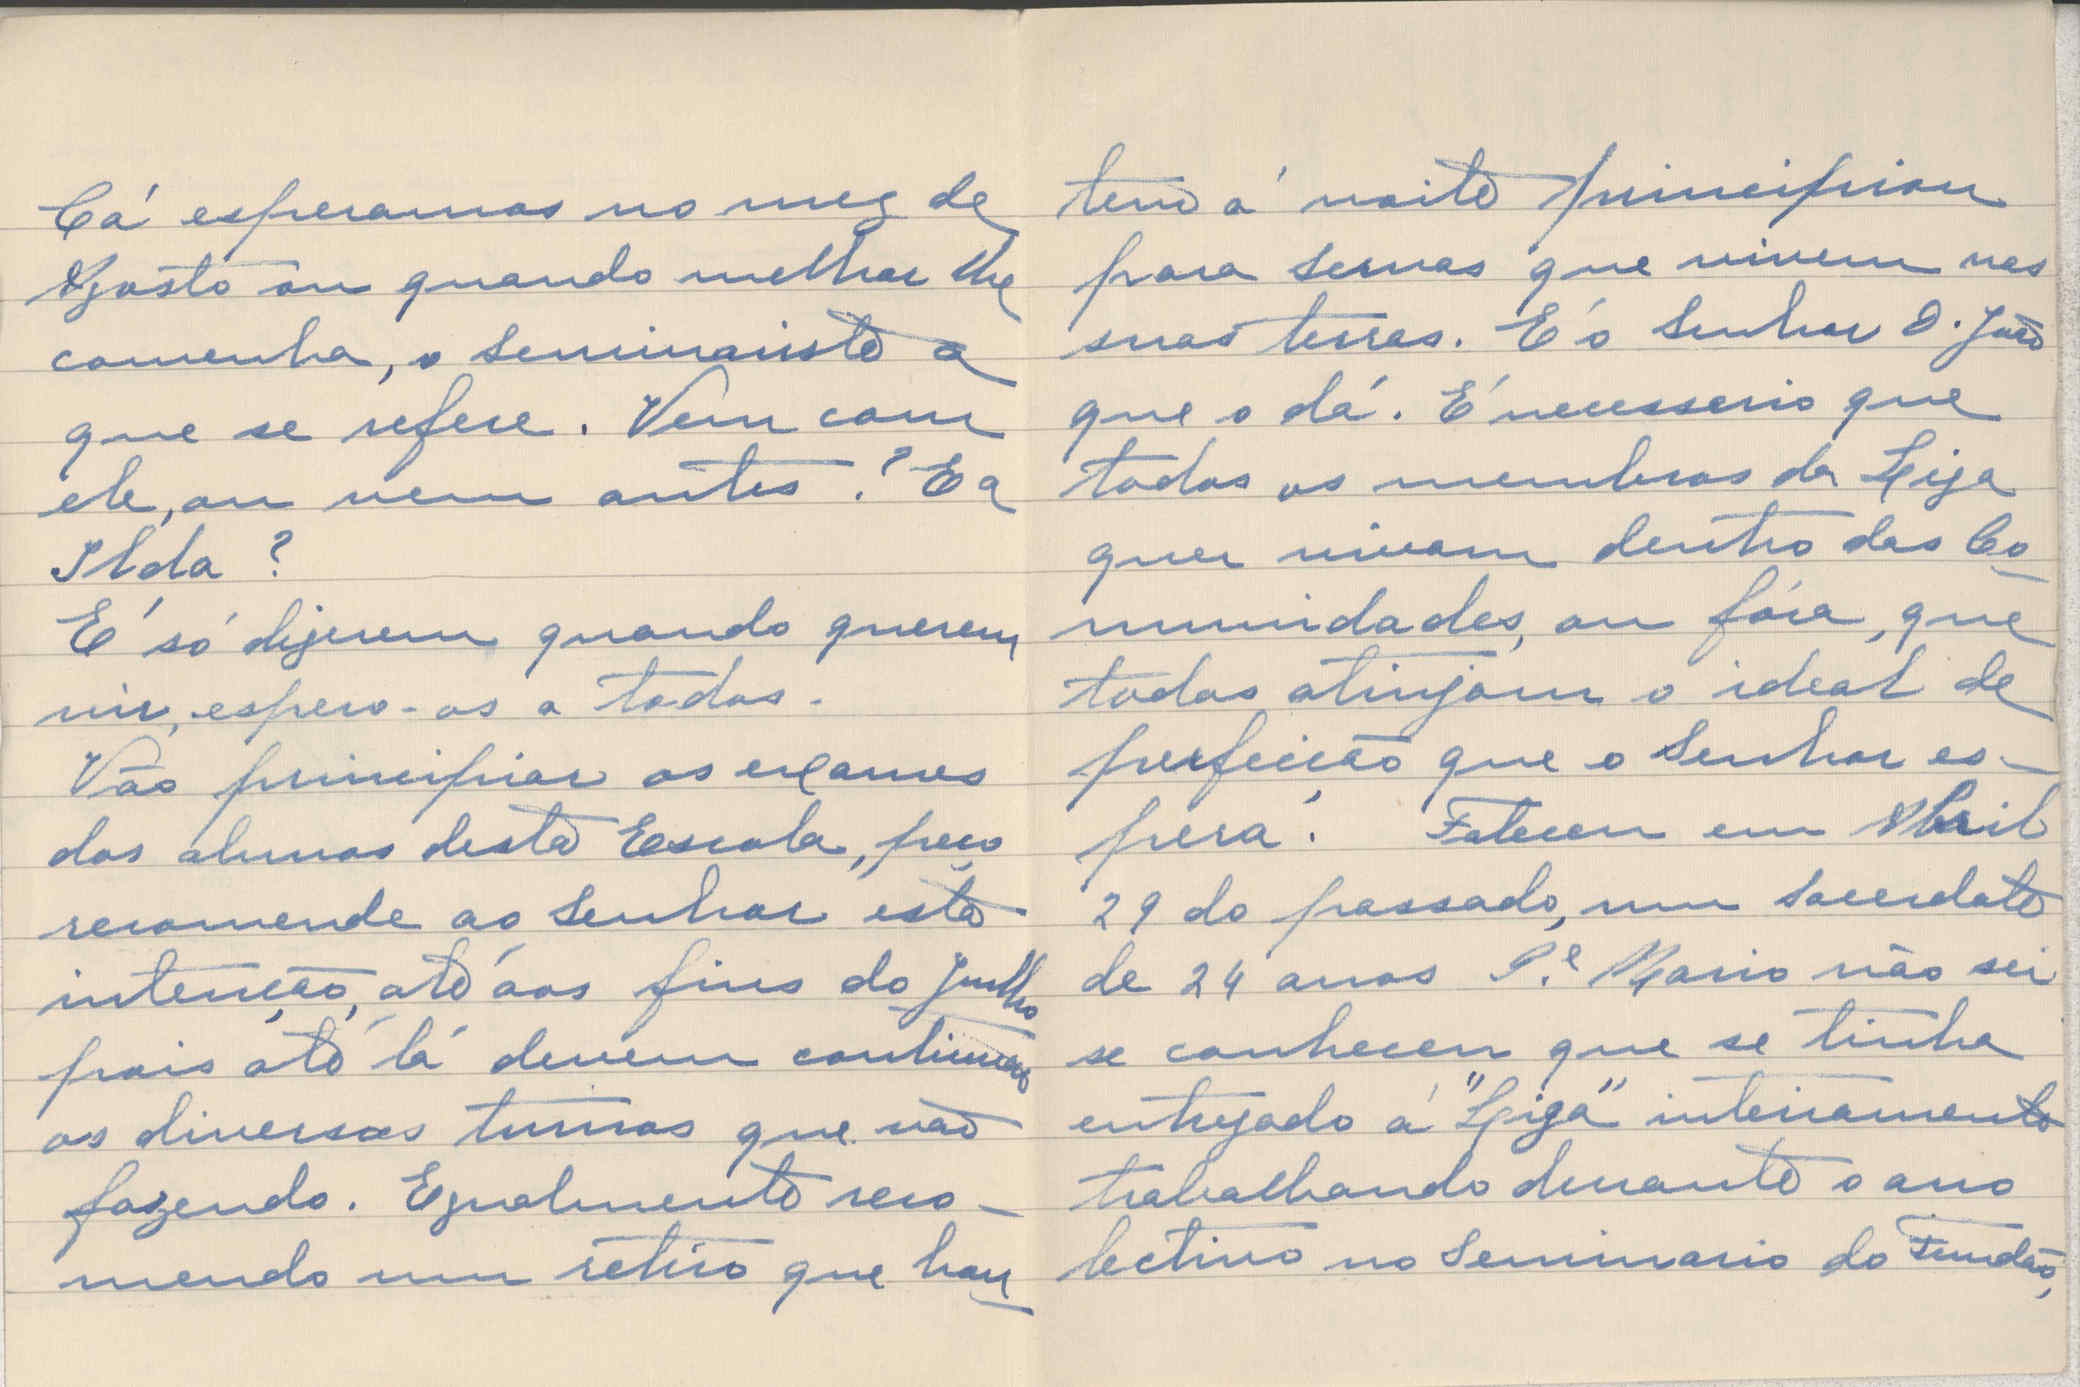 Cá esperamos no mez de
Agosto ou quando melhor lhe
convenha, o seminaristo a
que se refere. Vem com
ele, ou vem antes? E a
Ilda?
É só dizerem quando querem
vir, espero-os a todos.
Vão principiar os exames
dos alunos desta Escola, peço
recomende ao Senhor esta
intenção, até aos fins do Julho
pois até lá devem continuar
os diversos turnos que vão
fazendo. Egualmente reco-
mendo um retiro que hon
tem á noite principiou
para servas que vivem nas
suas terras. É o Senhor D. João
que o dá. É necessario que
todos os membros da Liga
quer vivam dentro das Co-
munidades, ou fóra, que
todos atinjam o ideal de
perfeição que o Senhor es-
pera. Faleceu em Abril
29 do passado, um sacerdote
de 24 anos P.e Mario não sei
se conheceu que se tinha
entregado á "Liga" inteiramente
trabalhando durante o ano
lectivo no Seminario do Fundão,